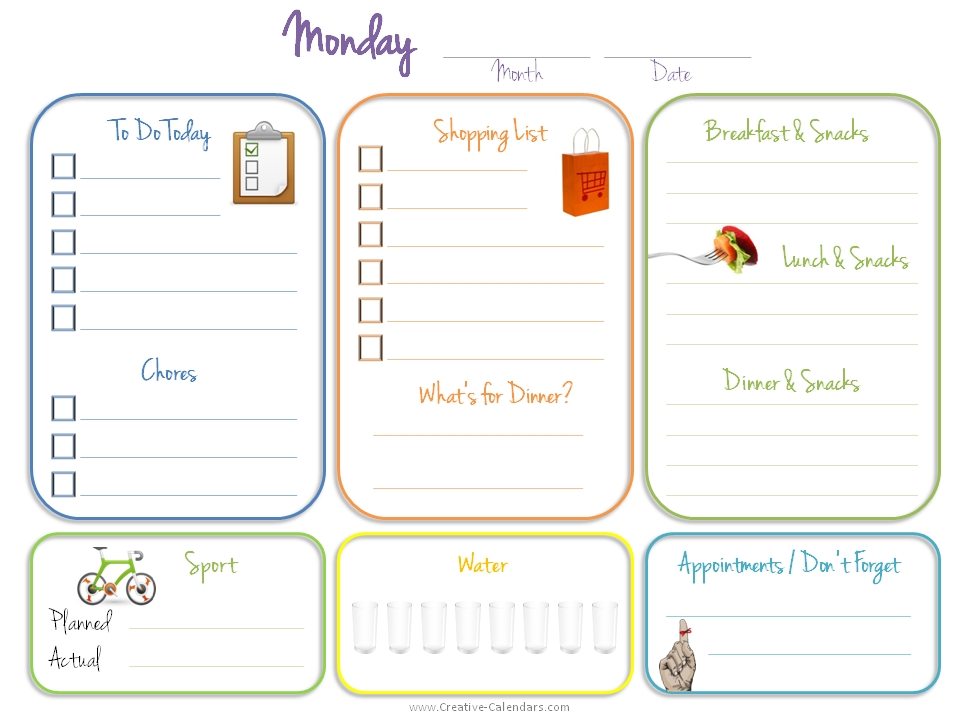 Monday
Month
Date
To Do Today
Chores
Shopping List
What's for Dinner?
Breakfast & Snacks
Lunch & Snacks
Dinner & Snacks
Sport
Planned
Actual
Water
Appointments / Don't Forget
www.Creative-Calendars.com